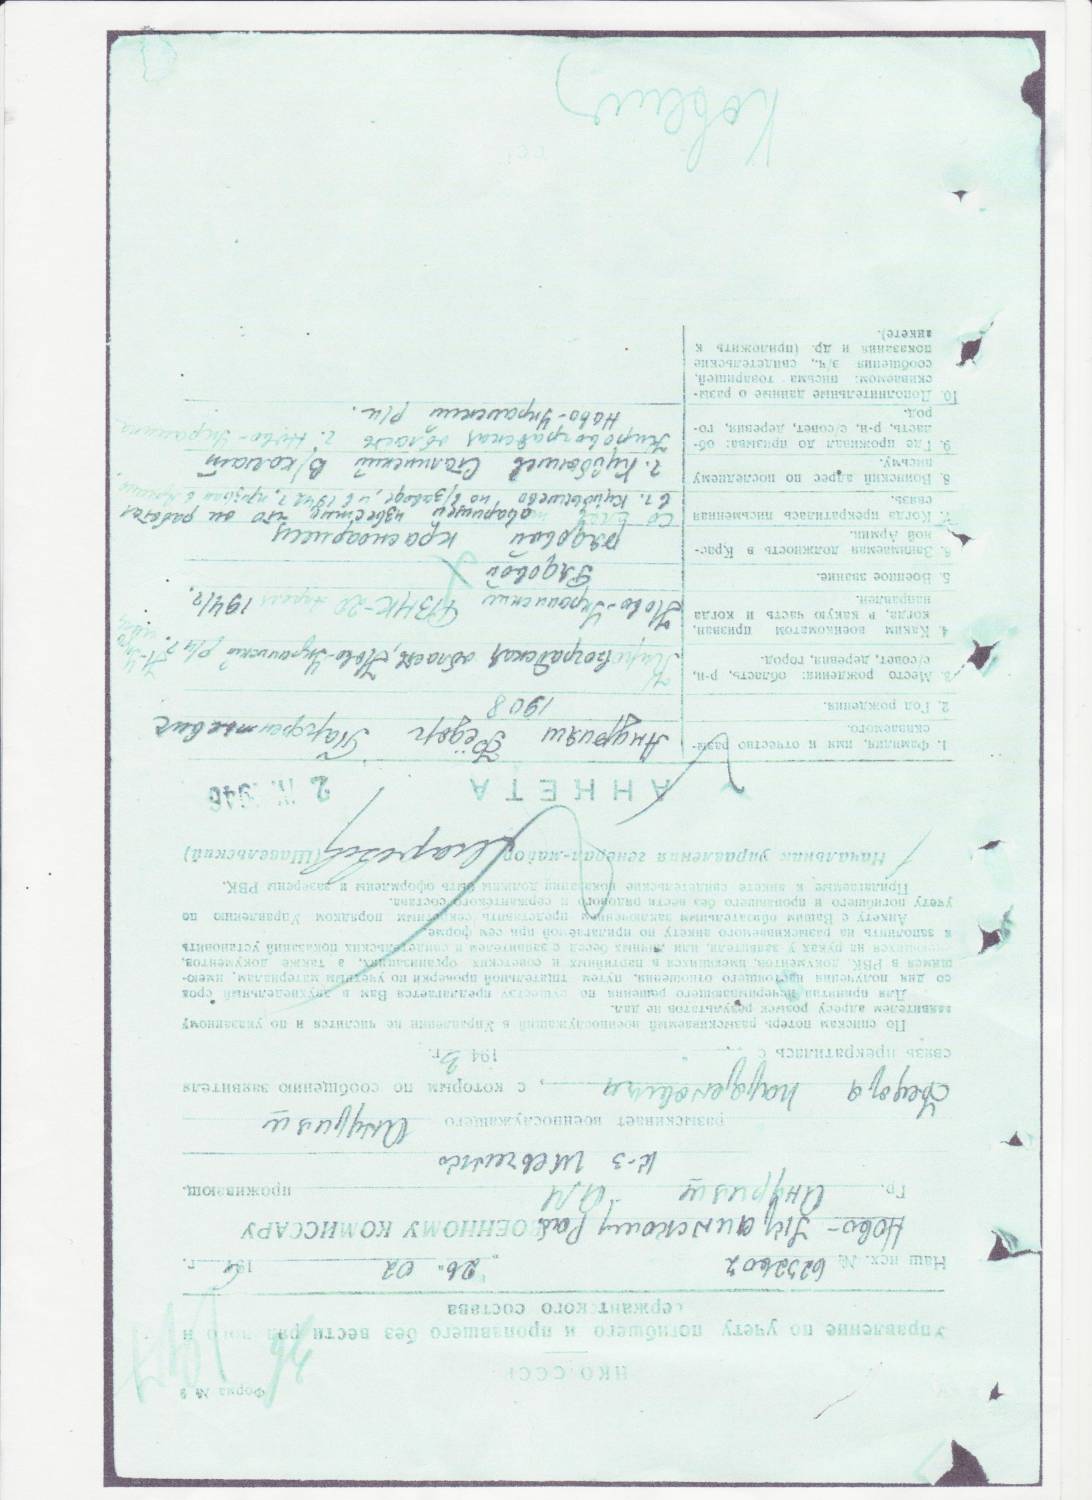 Форма № 2
НКО СССР
Управление по учету погибшего и пропавшего без вести рядового и
сержантского состава
Наш исх. № 6232602 „26" 02 1946 г.
Ново-Украинскому Рай ВОЕННОМУ КОМИССАРУ
Гр. Андрияш проживающ.
к-з Шевченко
разыскивает военнослужащего Андрияш
Федора, с которым по сообщению заявителя
связь прекратилась с „ " 194 г.
По спискам потерь разыскиваемый военнослужащий в Управлении не числится и по указанному
заявителем адресу розыск результатов не дал.
Для принятия исчерпывающего решения по существу предлагается Вам в двухнедельный срок
со дня получения настоящего отношения, путем тщательной проверки по учетным материалам, имею-
щимся в РВК, документов, имеющихся в партийных и советских организациях, а также документов,
имеющихся на руках у заявителя, или личных бесед с заявителем и свидетельских показаний установить
и заполнить на разыскиваемого анкету по прилагаемой при сем форме.
Анкету с Вашим обязательным заключением представить секретным порядком Управлению по
учету погибшего и пропавшего без вести рядового и сержантского состава.
Прилагаемые к анкете свидетельские показания должны быть оформлены и заверены РВК.
Начальник управления генерал-майор (Шавельский)
АНКЕТА
2 IV. 1946
1. Фамилия, имя и отчество разы-
скиваемого.
Андрияш Фёдор
2. Год рождения.
1908
3. Место рождения: область, р-н,
с/совет, деревня, город.
Кировоградская область, Ново-Украинский р/н
4. Каким военкоматом призван,
когда, в какую часть и когда
направлен.
Ново-Украинский 1941 г.
5. Военное звание.
Рядовой
6. Занимаемая должность в Крас-
ной Армии.
рядовой красноармеец
7. Когда прекратилась письменная
связь.
Со слов товарищей известно что он работал
в г. Куйбышево на в/заводе, и в 1942 г. призван в Армию
8. Воинский адрес по последнему
письму.
г. Куйбышев Сталинский
9. Где проживал до призыва: об-
ласть, р-н, с/совет, деревня, го-
род.
Кировоградская область г. Ново-Украинка
Ново-Украинский р/н.
10. Дополнительные данные о разы-
скиваемом: письма товарищей,
сообщения в/ч., свидетельские
показания и др. (приложить к
анкете).